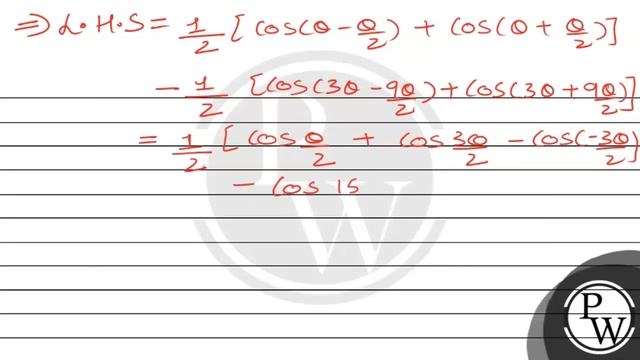 ⇒ L.H.S = 1/2 [cos(θ - θ/2) + cos(θ + θ/2)]
- 1/2 [cos(3θ - 9θ/2) + cos(3θ + 9θ/2)]
= 1/2 [cos θ/2 + cos 3θ/2 - cos(-3θ/2)
- cos 15
P
W
P
W